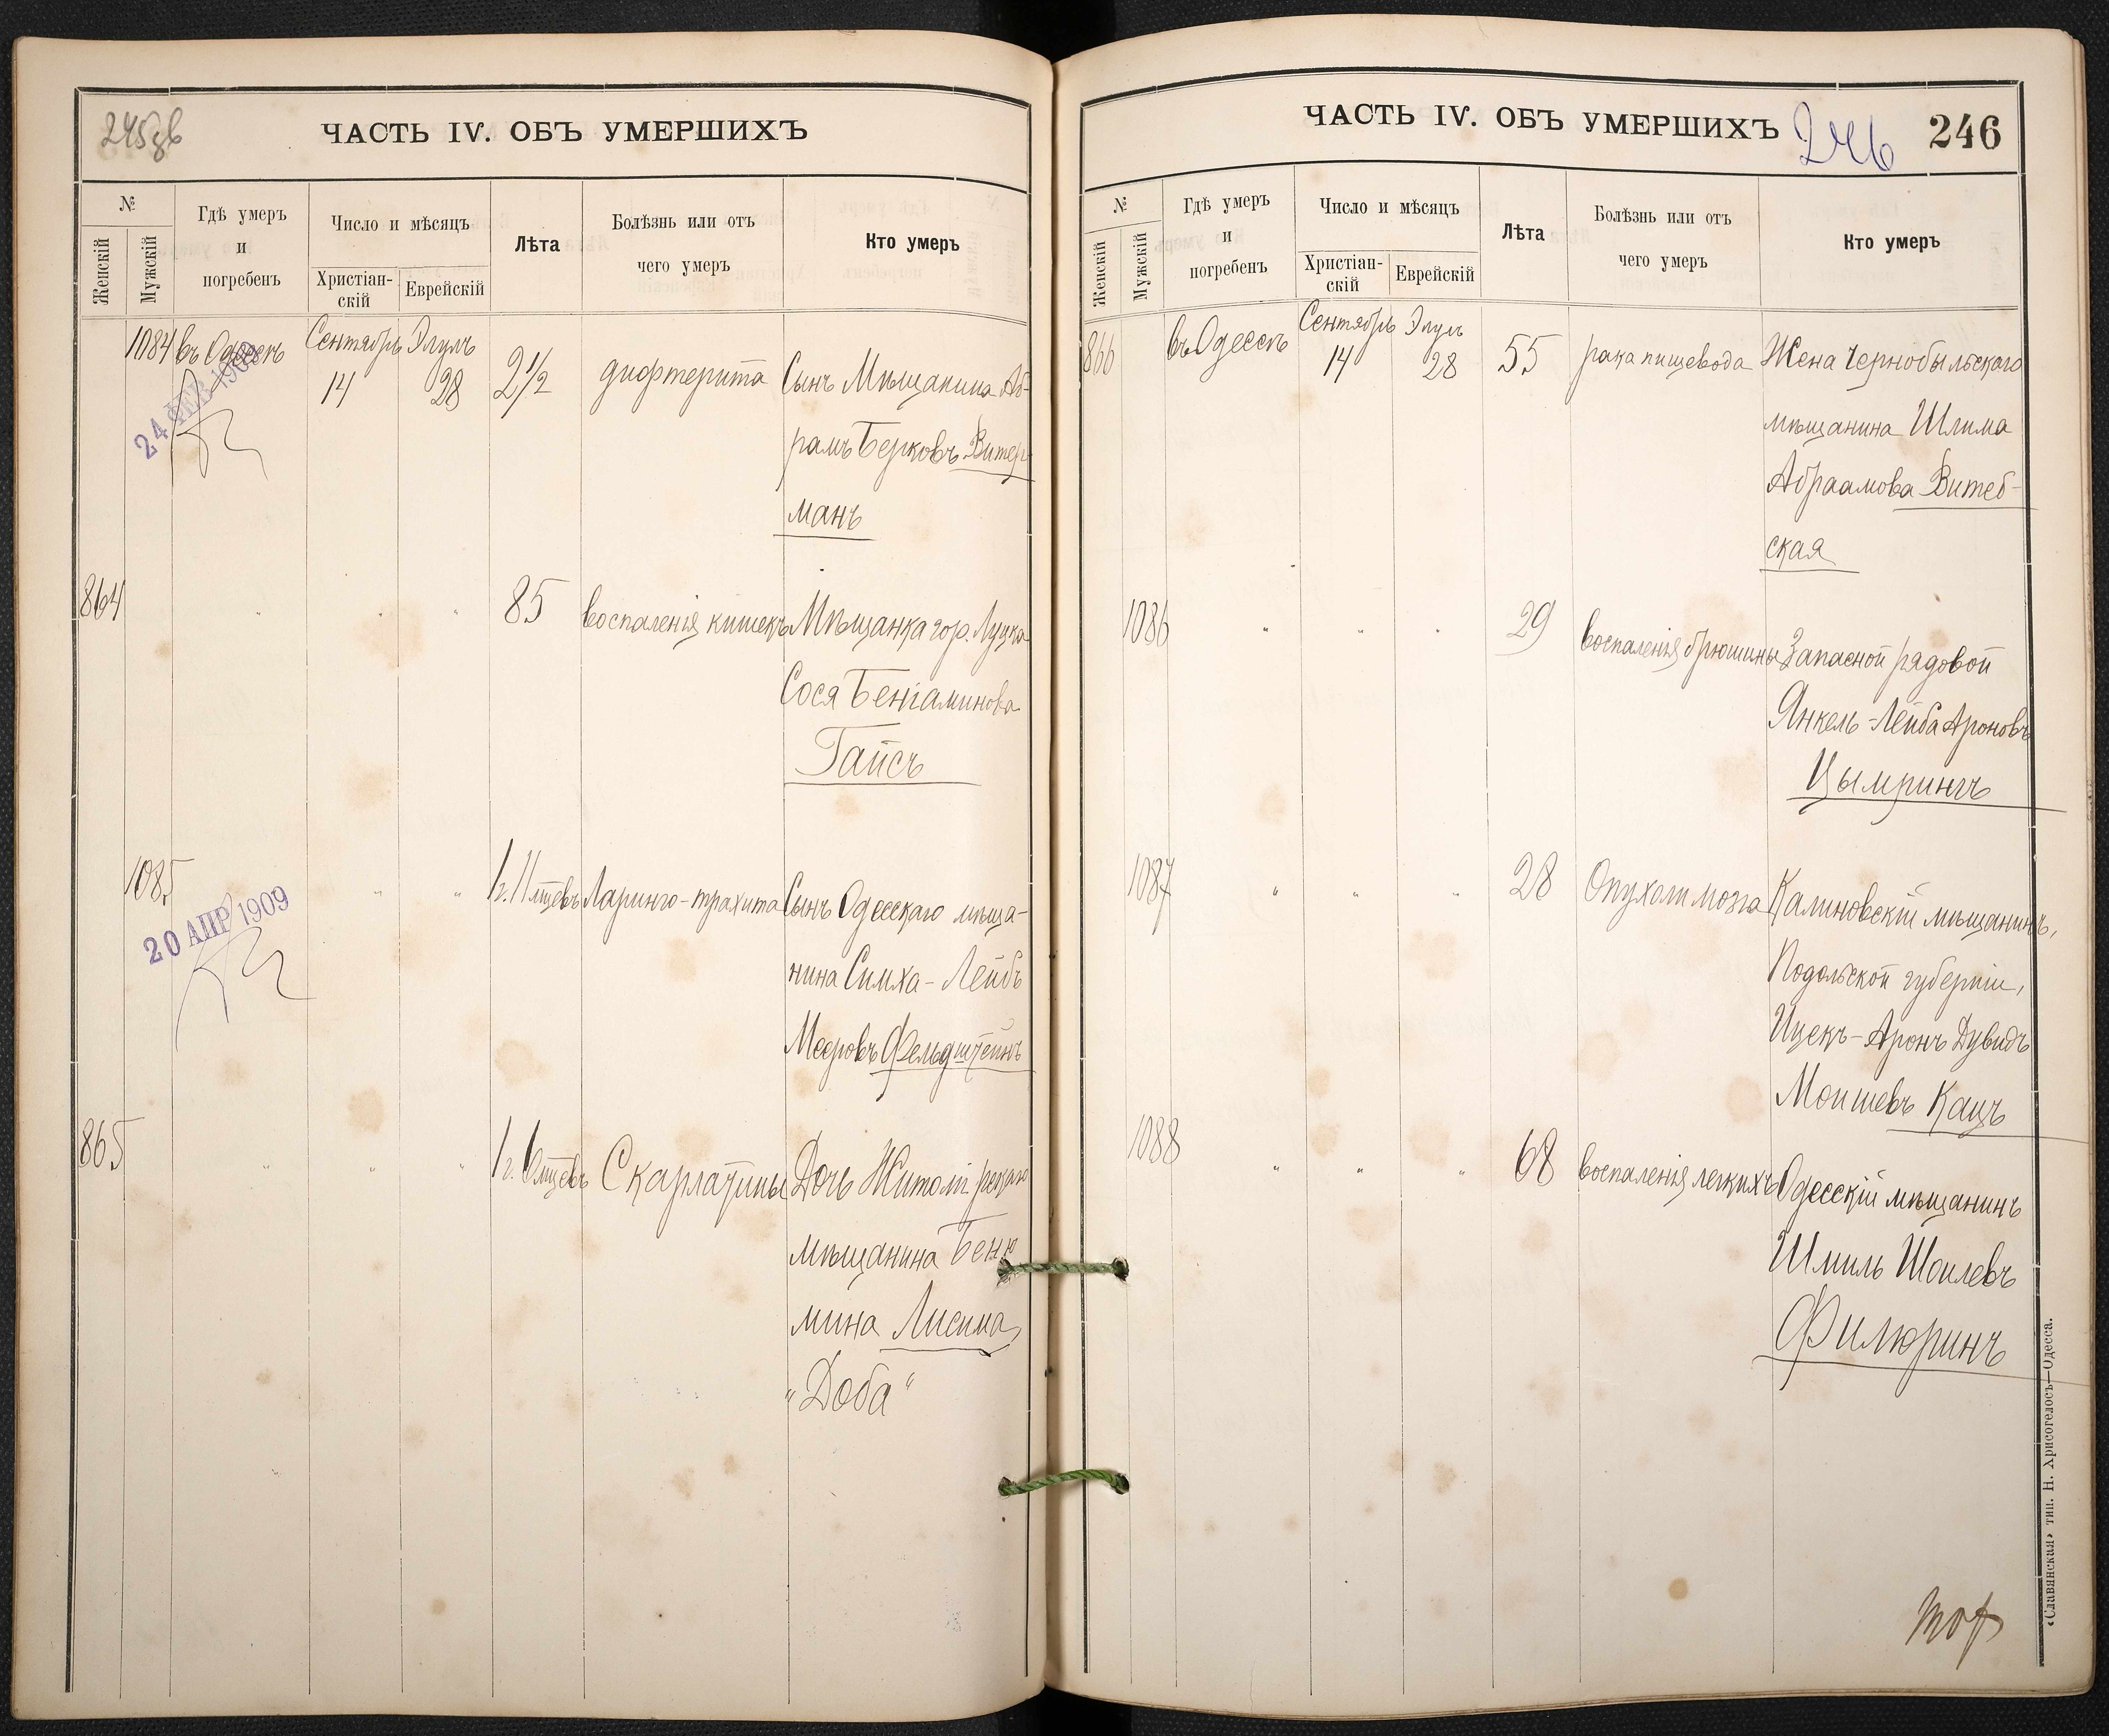 245 об
ЧАСТЬ IV. ОБЪ УМЕРШИХЪ
№
Женскій
Мужскій
Гдѣ умеръ
и
погребенъ
Число и мѣсяцъ
Христіан-
скій
Еврейскій
Лѣта
Болѣзнь или отъ
чего умеръ
Кто умеръ
1084 въ Одессѣ Сентябрь 14 Элулъ 28 2½ дифтерита Сынъ Мѣщанина Аб-
рамъ Берковъ Витер-
манъ
24 ФЕВ 1909
864 " " " 85 воспаленія кишекъ Мѣщанка гор. Луцка
Сося Беніаминова
Гайсъ
1085 " " 1 г. 11 мцевъ Ларинго-трахита Сынъ Одесскаго мѣща-
нина Симха-Лейбъ
Мееровъ Фельдштейнъ
20 АПР 1909
865 " " " 1 г. 6 мцевъ Скарлатины Дочь Житомірскаго
мѣщанина Беню
мина Лисима,
"Доба"
ЧАСТЬ IV. ОБЪ УМЕРШИХЪ
246
246
№
Женскій
Мужскій
Гдѣ умеръ
и
погребенъ
Число и мѣсяцъ
Христіан-
скій
Еврейскій
Лѣта
Болѣзнь или отъ
чего умеръ
Кто умеръ
866 въ Одессѣ Сентябрь 14 Элулъ 28 55 рака пищевода Жена Чернобыльскаго
мѣщанина Шлима
Абраамова Витеб-
ская
1086 " " " 29 воспаленія брюшины Запасной рядовой
Янкель-Лейба Ароновъ
Цымрингъ
1087 " " " 28 Опухоли мозга Калиновскій мѣщанинъ,
Подольской губерніи,
Ицекъ-Аронъ Дувидъ
Моишевъ Кацъ
1088 " " " 68 воспаленія легкихъ Одесскій мѣщанинъ
Шмиль Шоилевъ
Филюринъ
«Славянская» тип. Н. Хрисогелосъ—Одесса.